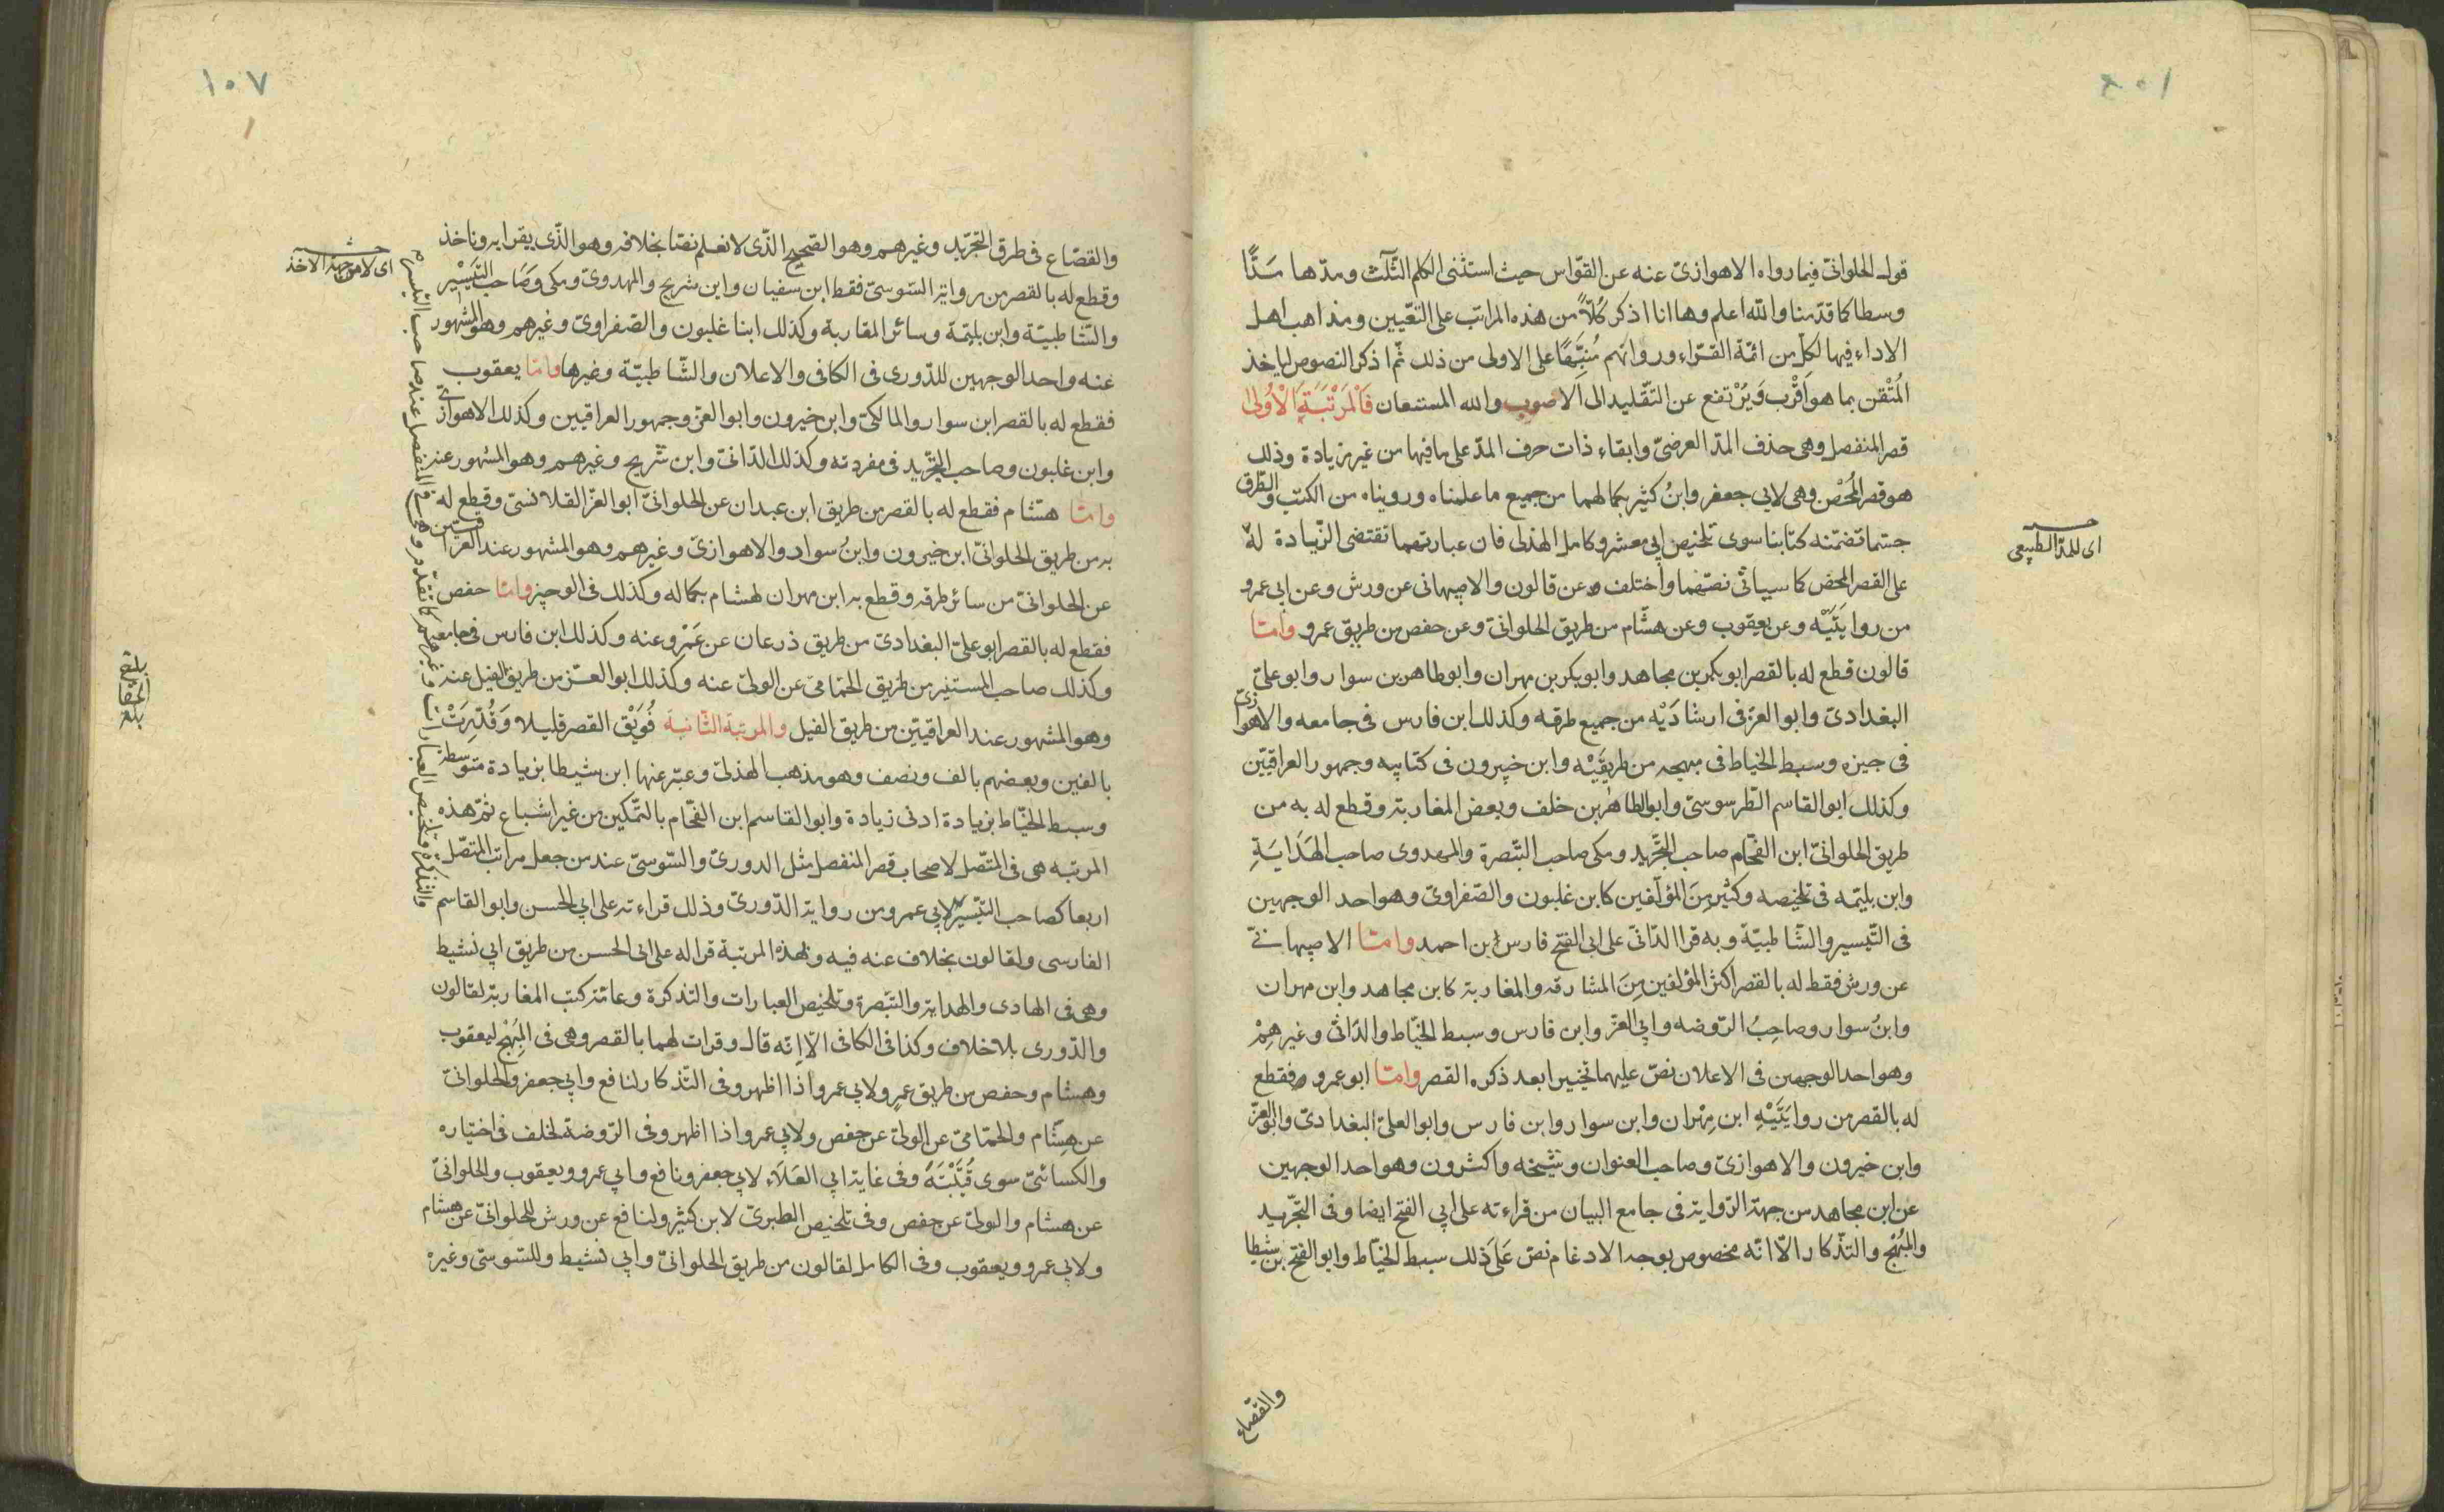 ١٠٦
قول الحلوانىّ فيما رواه الاهوازىّ عنه عن القوّاس حيث استثنى الكلم الثّلث ومدّها مَدًّا
وسطا كما قدّمنا والله اعلم وها انا اذكر كُلّاً من هذه المراتب على التّعيين ومذاهب اهل
الاداء فيها لكلّ من ائمّة القرّاء ورواتهم مُنَبِّهًا على الاولى من ذلك ثمّ اذكر النصوص لياخذ
المُتْقن بما هو اَقْرب وَيَرْتفع عن التّقليد الى الاصوب والله المستعان فَالْمَرْتَبَةُ الْاُولى
قصر المنفصل وهى حذف المدّ العرضىّ وابقاء ذات حرف المدّ على ما فيها من غير زيادة وذلك
هو قصر المَحْض وهى لابي جعفر وابنُ كثير بكمالهما من جميع ما علمناه ورويناه من الكتب والطّرق
حسّما تضمّنه كتابنا سوى تلخيص ابي معشر وكامل الهذلى فان عبارتهما تقتضى الزّيادة لهٗ
على القصر المحض كما سيأتى نصّهما واختلف عن قالون والاصبهانى عن ورش وعن ابي عمرو
من روايَتَيْه وعن يعقوب وعن هشّام من طريق الحلوانىّ وعن حفص من طريق عمرو وامّا
قالون قطع له بالقصر ابو بكر بن مجاهد وابو بكر بن مهران وابو طاهر بن سوار وابو علىّ
البغدادىّ وابو العزّ فى ارشادَيْه من جميع طرقه وكذلك ابن فارس فى جامعه والاهوازىّ
فى جيزه وسبط الخياط فى مبهجه من طريقَيْه وابن خيرون فى كتابيه وجمهور العراقيّين
وكذلك ابو القاسم الطّرسوسىّ وابو الطاهر بن خلف وبعض المغاربة وقطع له به من
طريق الحلوانىّ ابن الفحّام صاحب التّجريد ومكى صاحب التّبصرة والمهدوى صاحب الهَدَايَةِ
وابن بليمه فى تلخيصه وكثير مِنَ المؤلّفين كابن غلبون والصّفراوىّ وهو احد الوجهين
فى التّيسير والشّاطبيّة وبه قرا الدّانىّ على ابى الفتح فارس بن احمد وامّا الاصبهانىّ
عن ورش فقطع له بالقصر اكثر المؤلفين مِنَ المشارقه والمغاربة كابن مجاهد وابن مهران
وابنُ سوار وصاحِبُ الرّوضه وابي العزّ وابن فارس وسبط الخيّاط والدّانىّ وغيرهِمْ
وهو احد الوجهين فى الاعلان نصّ عليهما تخييرا بعد ذكره القصر وامّا ابو عمرو فقطع
له بالقصر من روايَتَيْهِ ابن مِهْران وابن سوار وابن فارس وابو العلىّ البغدادىّ وابو العزّ
وابن خيرون والاهوازىّ وصاحب العنوان وشيخه واكثرون وهو احد الوجهين
عن ابن مجاهد من جهة الرّواية فى جامع البيان من قراءته على ابي الفتح ايضا وفى التّجريد
والمُبْهج والتذكار الّا انّه مخصوص بوجه الادغام نصّ عَلَى ذلك سبط الخيّاط وابو الفتح بن شيطا
اى للمدّ الطبيعى
والقصّاع
١٠٧
والقصّاع فى طرق التّجريد وغيرهم وهو الصّحيح الّذى لا نعلم نصّا بخلافه وهو الّذى يقرا به وناخذ
وقطع له بالقصر من رواية السّوسىّ فقط ابن سفيان وابن شريح والمهدوىّ ومكى وصَاحب التّيَسيْر
والشّاطبيّة وابن بليّمة وسائر المغاربة وكذلك ابنا غلبون والصّفراوىّ وغيرهم وهو المشهور
عنه واحد الوجهين للدّورى فى الكافى والاعلان والشّاطبيّة وغيرها وامّا يعقوب
فقطع له بالقصر ابن سوار والمالكىّ وابن خيرون وابو العزّ وجمهور العراقيين وكذلك الاهوازىّ
وابن غلبون وصاحب التّجريد فى مفردته وكذلك الدّانىّ وابن شريح وغيرهم وهو المشهور عنه
وامّا هشّام فقطع له بالقصر من طريق ابن عبدان عن الحلوانىّ ابو العزّ القلانسىّ وقطع له
به من طريق الحلوانىّ ابن خيرون وابنُ سوار والاهوازىّ وغيرهم وهو المشهور عند العراقيّين
عن الحلوانىّ من سائر طرقه وقطع به ابن مهران لهشام بكماله وكذلك فى الوجيز وامّا حفص
فقطع له بالقصر ابو علىّ البغدادىّ من طريق ذرعان عن عَمْرو عنه وكذلك ابن فارس فى جامعه
وكذلك صاحب المستنير من طريق الحمّامىّ عن الولىّ عنه وكذلك ابو العزّ من طريق الفيل عنه
وهو المشهور عند العراقيّين من طريق الفيل والمرتبة الثّانية فُوَيْق القصر قليلا وَقُدِّرَتْ
بالفين وبعضهم بالف ونصف وهو مذهب الهذلىّ وعبّر عنها ابن شيطا بزيادة متوسطة
وسبط الخيّاط بزيادة ادنى زيادة وابو القاسم ابن الفحّام بالتّمكين من غير اشباع ثمّ هذه
المرتبه هى فى المتّصل لاصحاب قصر المنفصل مثل الدورىّ والسّوسىّ عند من جعل مراتب المتصّل
اربعا كصاحب التّيسير لابي عمرو من رواية الدّورىّ وذلك قراءته على ابي الحسن وابو القاسم
الفارسى ولقالون بخلاف عنه فيه وبهذه المرتبة قرا له على ابى الحسن من طريق ابي نشيط
وهى فى الهادى والهداية والتّبصرة وتلخيص العبارات والتذكرة وعامّة كتب المغاربة لقالون
والدّورى بلا خلاف وكذا فى الكافى الّا انّه قال وقرات لهما بالقصر وهى فى المُبْهج ليعقوب
وهشّام وحفص من طريق عمرٍو ولابي عمرو اذا اظهر وفى التّذكار لنافع وابي جعفر والحلوانىّ
عن هشّام والحمّامىّ عن الولىّ عن حفص ولابي عمرو اذا اظهر وفى الرّوضة لخلف فى اختياره
والكسائىّ سوى قُتَيْبَةَ وفى غاية ابي العَلاء لابي جعفر ونافع وابي عمرو ويعقوب والحلوانىّ
عن هشام والولىّ عن حفص وفى تلخيص الطبرىّ لابن كثير ولنافع عن ورش للحلوانىّ عن هشام
ولابي عمرو ويعقوب وفى الكامل لقالون من طريق الحلوانىّ وابي نشيط وللسّوسىّ وغيره
اى لا من جهة الاخذ
بلغ